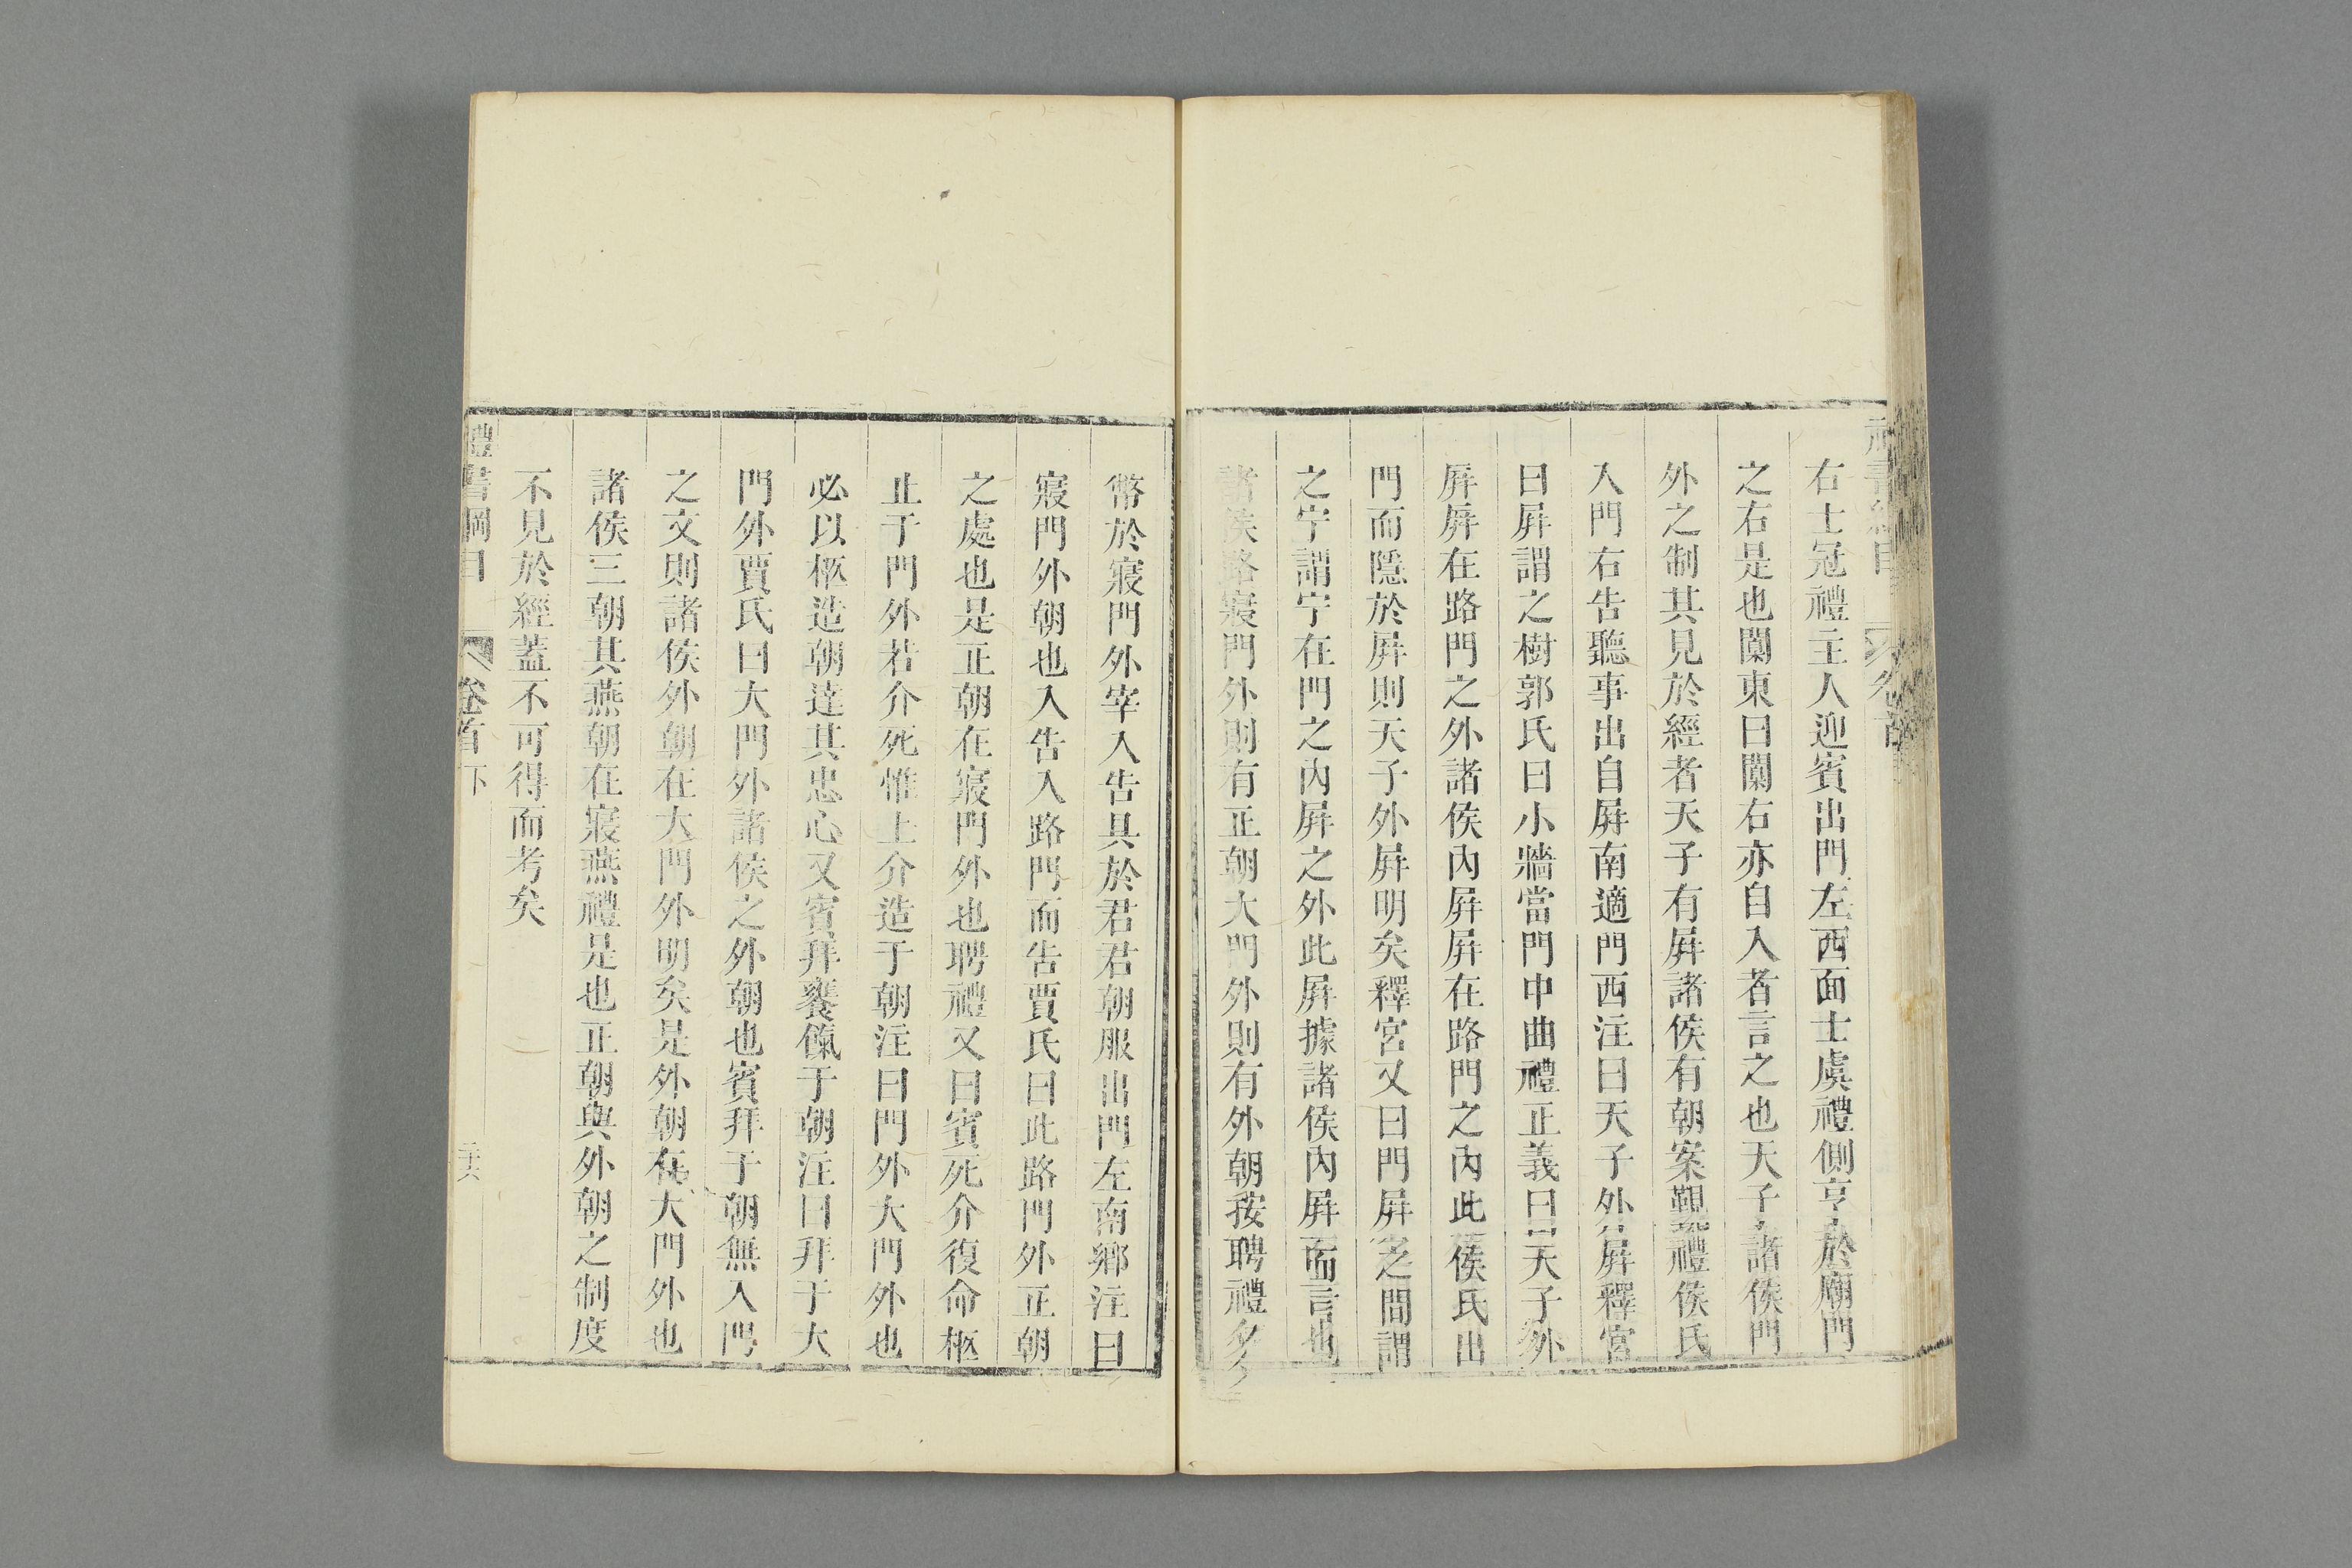 右士冠禮主人迎賓出門左西面士虞禮側亨於廟門
之右是也闑東曰闑右亦自入者言之也天子諸侯門
外之制其見於經者天子有屏諸侯有朝案覲禮侯氏
入門右告聽事出自屏南適門西注曰天子外屏釋宮
曰屏謂之樹郭氏曰小牆當門中曲禮正義曰天子外
屏屏在路門之外諸侯內屏屏在路門之內此侯氏出
門而隱於屏則天子外屏明矣釋宮又曰門屏之間謂
之宁謂宁在門之內屏之外此屏據諸侯內屏而言也
諸侯路寢門外則有正朝大門外則有外朝按聘禮夕
幣於寢門外宰入告具於君君朝服出門左南鄉注曰
寢門外朝也入告入路門而告賈氏曰此路門外正朝
之處也是正朝在寢門外也聘禮又曰賓死介復命柩
止于門外若介死惟上介造于朝注曰門外大門外也
必以柩造朝達其忠心又賓拜饔餼于朝注曰拜于大
門外賈氏曰大門外諸侯之外朝也賓拜于朝無入門
之文則諸侯外朝在大門外明矣是外朝在大門外也
諸侯三朝其燕朝在寢燕禮是也正朝與外朝之制度
不見於經蓋不可得而考矣
禮書綱目 卷首下 二十六